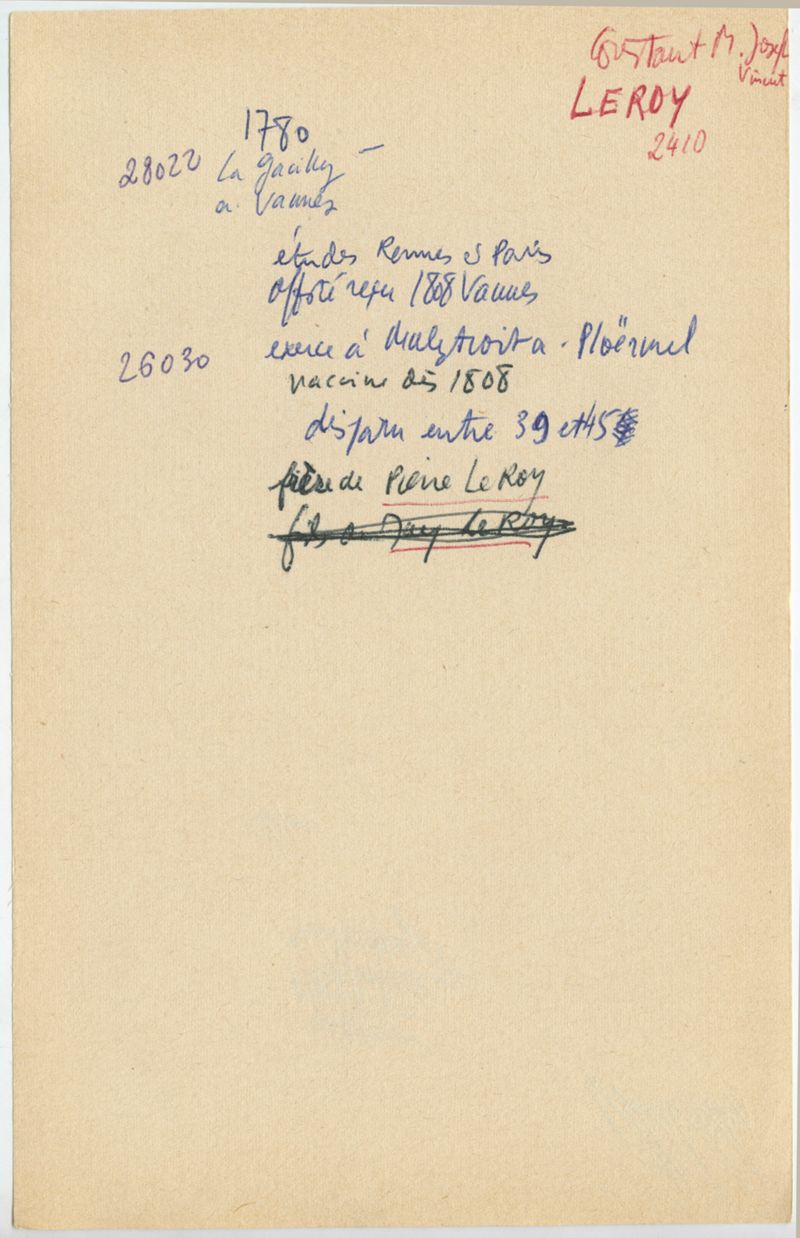 Constant M. Joseph
Vincent
LEROY
2410
1780
28022 La Gacilly -
a. Vannes
études Rennes & Paris
off. reçu 1808 Vannes
26030 exerce à Malestroit a. Ploërmel
vaccine dès 1808
disparu entre 39 et 45
frère de Pierre Le Roy
fils de Le Roy